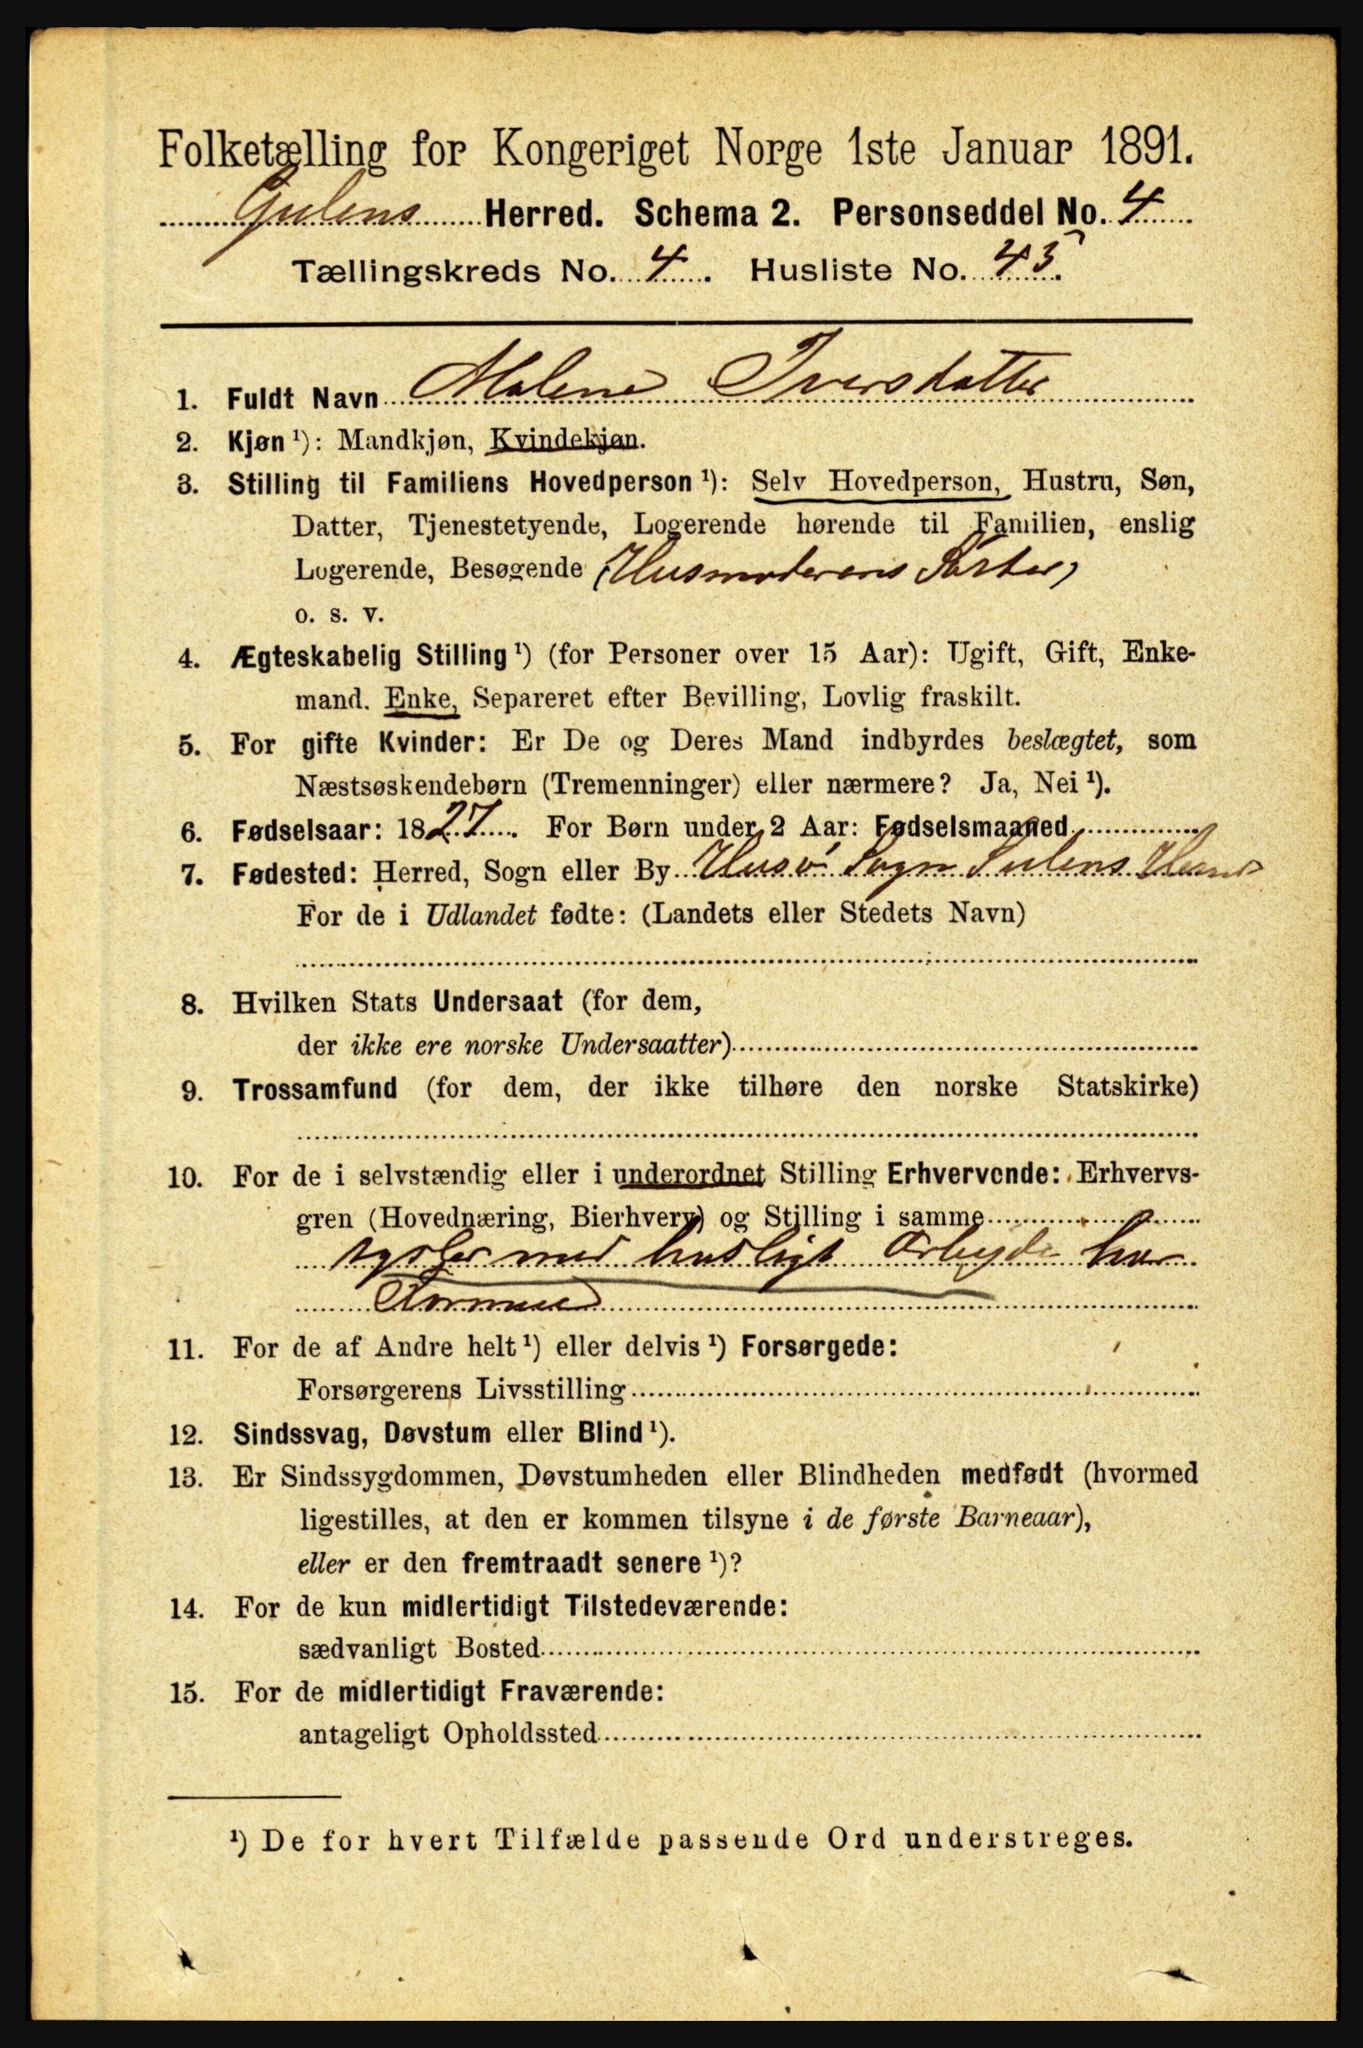 Folketælling for Kongeriget Norge 1ste Januar 1891.
Gulens Herred. Schema 2. Personseddel No. 4
Tællingskreds No. 4. Husliste No. 43.
1. Fuldt Navn Malene Iversdatter
2. Kjøn ¹): Mandkjøn, Kvindekjøn.
3. Stilling til Familiens Hovedperson ¹): Selv Hovedperson, Hustru, Søn,
Datter, Tjenestetyende, Logerende hørende til Familien, enslig
Logerende, Besøgende (Husmoderens Søster)
o. s. v.
4. Ægteskabelig Stilling ¹) (for Personer over 15 Aar): Ugift, Gift, Enke-
mand. Enke, Separeret efter Bevilling, Lovlig fraskilt.
5. For gifte Kvinder: Er De og Deres Mand indbyrdes beslægtet, som
Næstsøskendebørn (Tremenninger) eller nærmere? Ja, Nei ¹).
6. Fødselsaar: 1827. For Børn under 2 Aar: Fødselsmaaned
7. Fødested: Herred, Sogn eller By Husø Sogn Sulens
For de i Udlandet fødte: (Landets eller Stedets Navn)
8. Hvilken Stats Undersaat (for dem,
der ikke ere norske Undersaatter)
9. Trossamfund (for dem, der ikke tilhøre den norske Statskirke)
10. For de i selvstændig eller i underordnet Stilling Erhvervende: Erhvervs-
gren (Hovednæring, Bierhverv) og Stilling i samme
sysler med husligt Arbeyde har
Formue
11. For de af Andre helt ¹) eller delvis ¹) Forsørgede:
Forsørgerens Livsstilling
12. Sindssvag, Døvstum eller Blind ¹).
13. Er Sindssygdommen, Døvstumheden eller Blindheden medfødt (hvormed
ligestilles, at den er kommen tilsyne i de første Barneaar),
eller er den fremtraadt senere ¹)?
14. For de kun midlertidigt Tilstedeværende:
sædvanligt Bosted
15. For de midlertidigt Fraværende:
antageligt Opholdssted
¹) De for hvert Tilfælde passende Ord understreges.